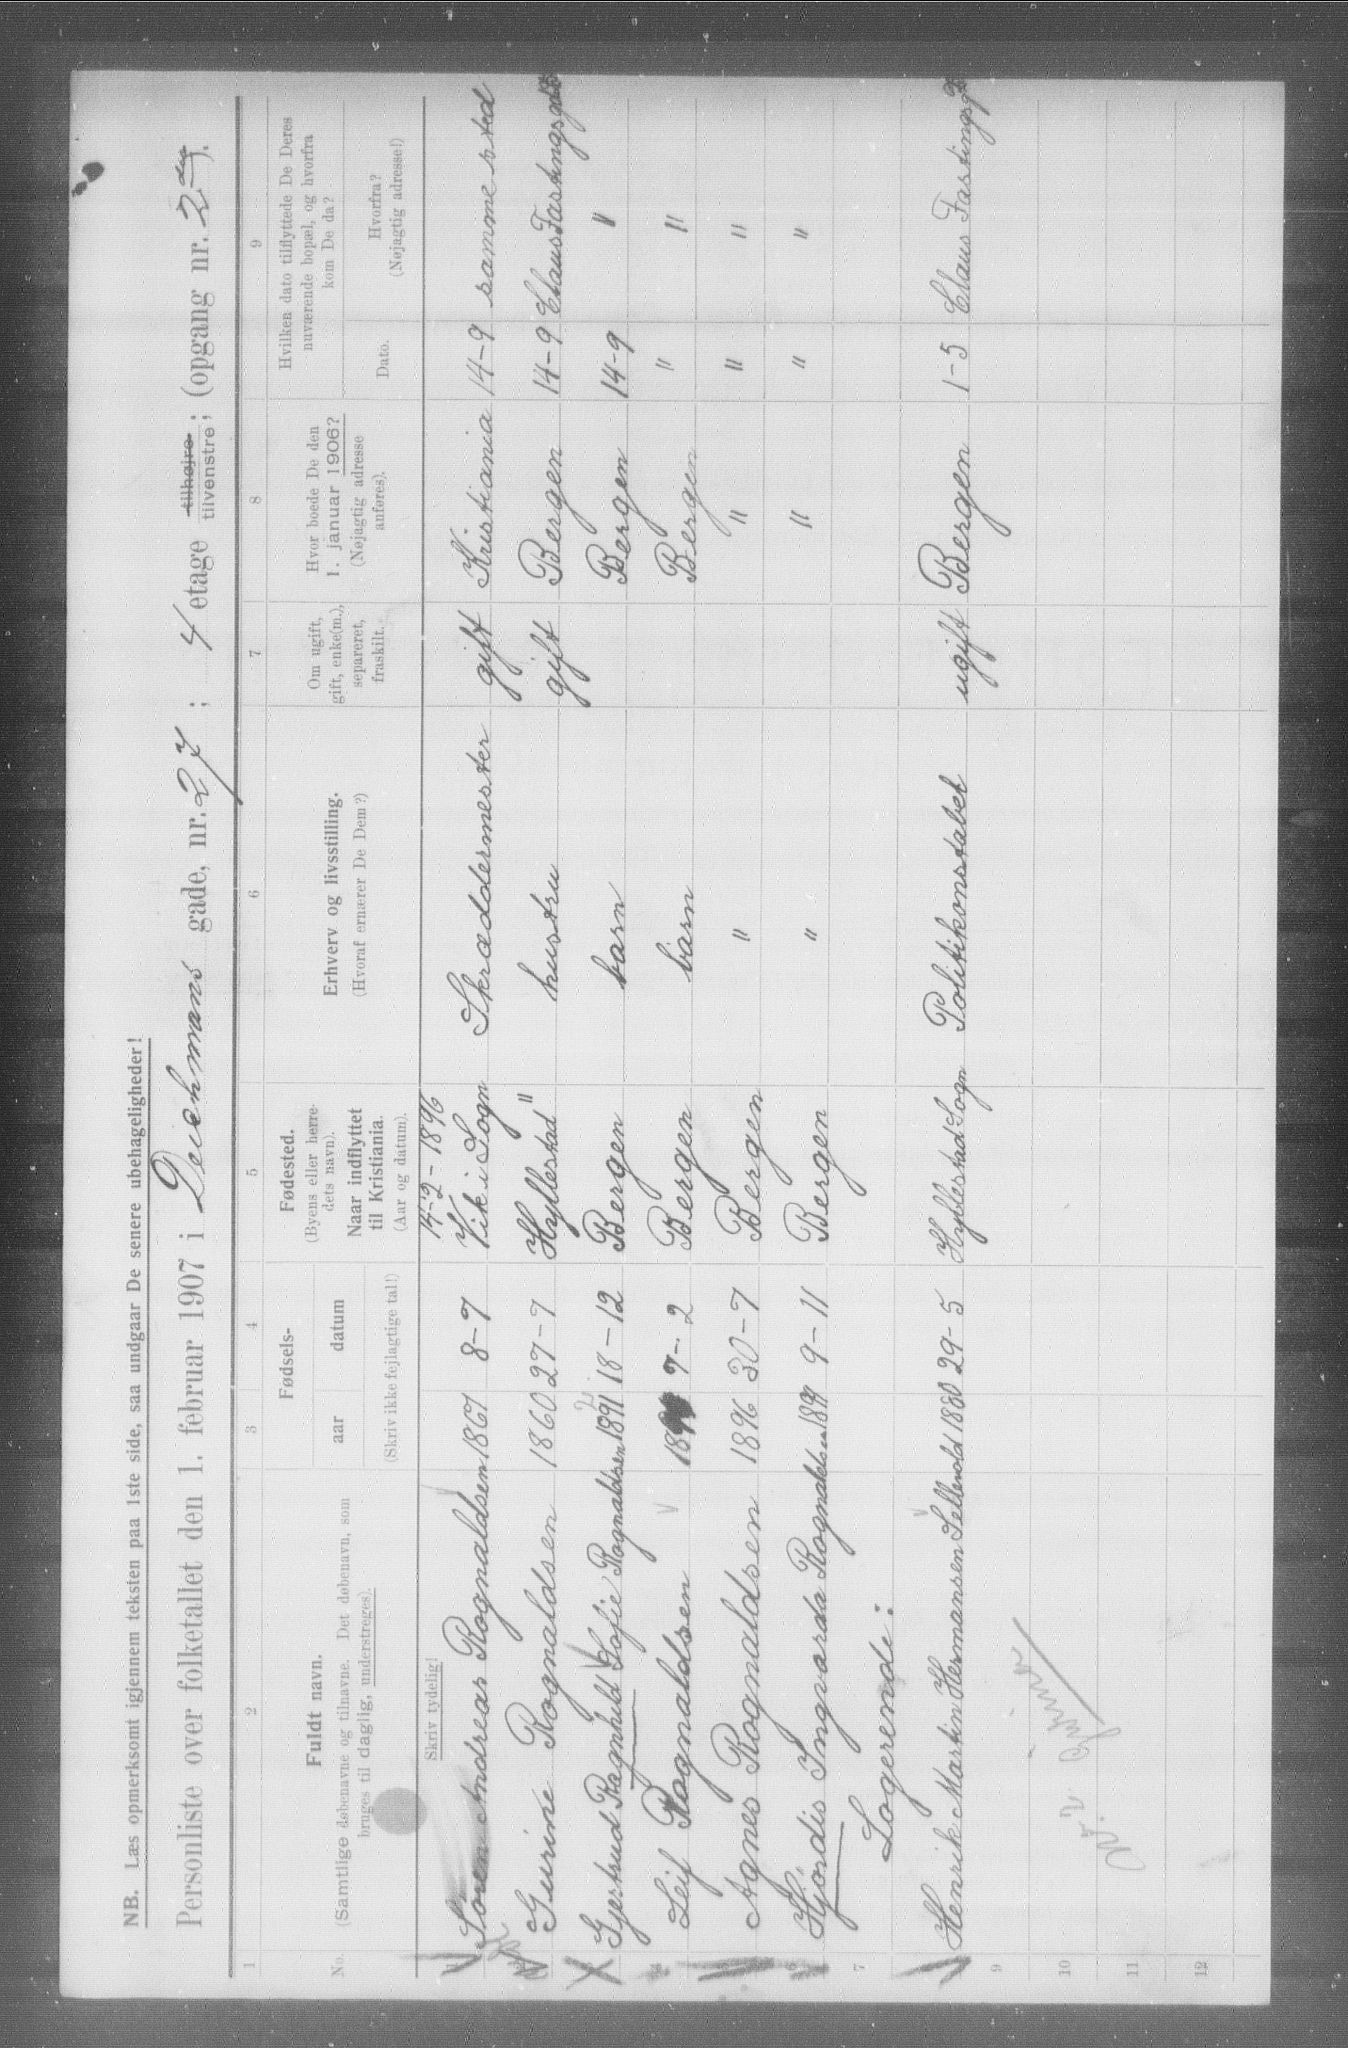 NB. Læs opmerksomt igjennem teksten paa 1ste side, saa undgaar De senere ubehageligheder!
Personliste over folketallet den 1. februar 1907 i Deichmans gade, nr. 27; 4 etage tilhøjre tilvenstre; (opgang nr. 2den).
1 2 3 4 5 6 7 8 9
No.
Fuldt navn.
(Samtlige døbenavne og tilnavne. Det døbenavn, som
bruges til daglig, understreges).
Skriv tydelig!
Fødsels-
aar datum
(Skriv ikke fejlagtige tal!)
Fødested.
(Byens eller herre-
dets navn).
Naar indflyttet
til Kristiania.
(Aar og datum).
Erhverv og livsstilling.
(Hvoraf ernærer De Dem?)
Om ugift,
gift, enke(m.),
separeret,
fraskilt.
Hvor boede De den
1. januar 1906?
(Nøjagtig adresse
anføres).
Hvilken dato tilflyttede De Deres
nuværende bopæl, og hvorfra
kom De da?
Dato.
Hvorfra?
(Nøjagtig adresse!)
14-2-1896
Søren Andreas Rognaldsen 1867 8-7 Vik i Sogn Skræddermester gift Kristiania 14-9 samme sted
Gurine Rognaldsen 1860 27-7 Hyllestad " hustru gift Bergen 14-9 Claus Fastingsgade
Gjertrud Ragnhild Sofie Rognaldsen 1891 18-12 Bergen barn Bergen 14-9 "
Leif Rognaldsen 7-2 Bergen barn Bergen " "
Agnes Rognaldsen 1896 30-7 Bergen " " " "
6 Hjørdis Ingvarda Rognaldsen 1899 9-11 Bergen " " " "
7 Logerende:
Henrik Martin Hermansen Sellevold 1880 29-5 Hyllestad Sogn Politikonstabel ugift Bergen 1-5 Claus Fastingsg
9
10
11
12